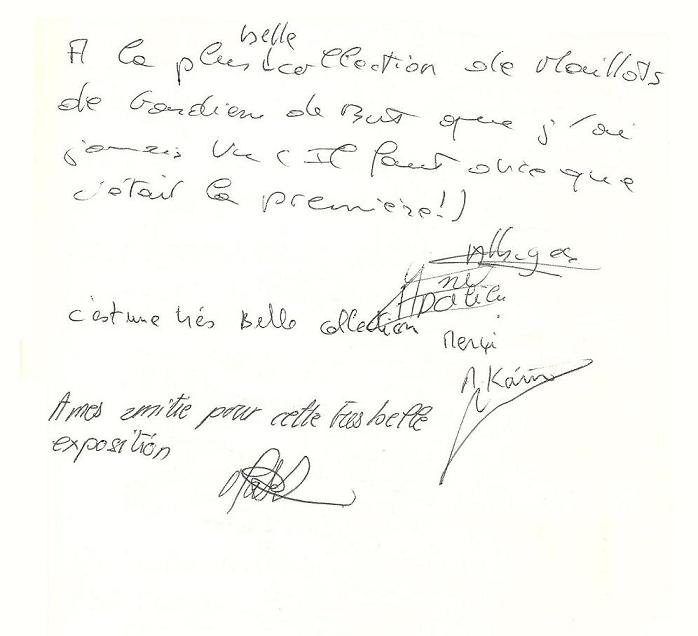 A la plus belle collection de Maillots
de Gardien de But que j'ai
jamais Vu (Il faut dire que
c'était la première!)
c'est une très Belle collection
Merci
M. Karim
A mes amitié pour cette très belle
exposition